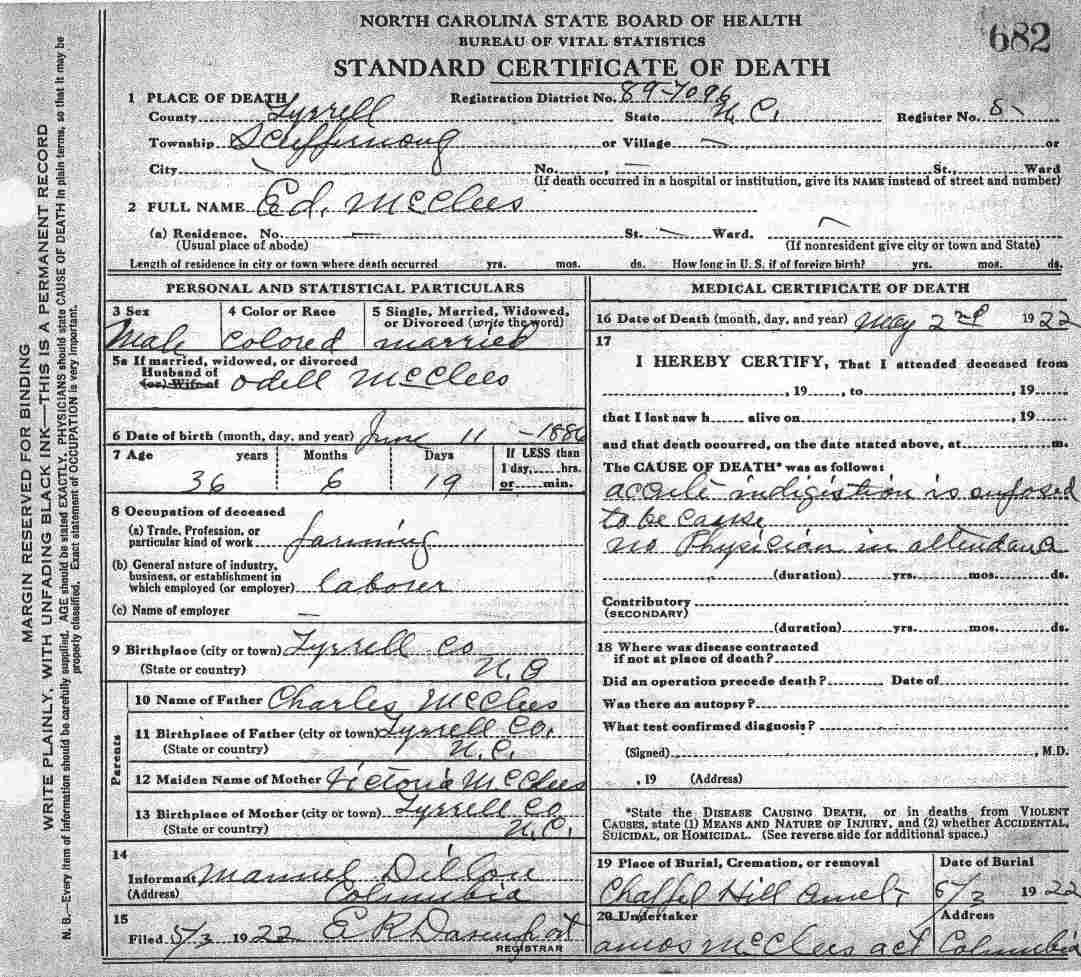 NORTH CAROLINA STATE BOARD OF HEALTH
BUREAU OF VITAL STATISTICS
682
STANDARD CERTIFICATE OF DEATH
1 PLACE OF DEATH Registration District No. 89-7096
County Tyrrell State N.C. Register No. 8
Township Scuffernong or Village — or
City No. St., Ward
(If death occurred in a hospital or institution, give its NAME instead of street and number)
2 FULL NAME Ed. McClees
(a) Residence. No. — St. — Ward.
(Usual place of abode) (If nonresident give city or town and State)
Length of residence in city or town where death occurred yrs. mos. ds. How long in U.S. if of foreign birth? yrs. mos. ds.
PERSONAL AND STATISTICAL PARTICULARS
3 Sex 4 Color or Race 5 Single, Married, Widowed, or Divorced (write the word)
Male colored married
5a If married, widowed, or divorced
Husband of
(or) Wife of Odell McClees
6 Date of birth (month, day, and year) June 11 - 1886
7 Age years Months Days If LESS than
1 day, hrs.
or min.
36 6 19
8 Occupation of deceased
(a) Trade, Profession, or
particular kind of work farming
(b) General nature of industry,
business, or establishment in
which employed (or employer) laborer
(c) Name of employer —
9 Birthplace (city or town) Tyrrell Co
(State or country) N.C
Parents
10 Name of Father Charles McClees
11 Birthplace of Father (city or town) Tyrrell Co.
(State or country) N.C.
12 Maiden Name of Mother Victoria McClees
13 Birthplace of Mother (city or town) Tyrrell Co
(State or country) N.C.
14
Informant Manuel Dillon
(Address) Columbia
15
Filed 5/3 1922 E R Davenport
REGISTRAR
MEDICAL CERTIFICATE OF DEATH
16 Date of Death (month, day, and year) May 2nd 1922
17
I HEREBY CERTIFY, That I attended deceased from
, 19 , to , 19
that I last saw h alive on , 19
and that death occurred, on the date stated above, at m.
The CAUSE OF DEATH* was as follows:
accute indigistion is suposed
to be cause
no Physician in attendance
(duration) yrs. mos. ds.
Contributory
(SECONDARY)
(duration) yrs. mos. ds.
18 Where was disease contracted
if not at place of death?
Did an operation precede death? Date of
Was there an autopsy?
What test confirmed diagnosis?
(Signed) , M.D.
, 19 (Address)
*State the DISEASE CAUSING DEATH, or in deaths from VIOLENT
CAUSES, state (1) MEANS AND NATURE OF INJURY, and (2) whether ACCIDENTAL,
SUICIDAL, OR HOMICIDAL. (See reverse side for additional space.)
19 Place of Burial, Cremation, or removal Date of Burial
Chappel Hill 5/3 1922
20 Undertaker Address
Amos McClees act Columbia
MARGIN RESERVED FOR BINDING
WRITE PLAINLY, WITH UNFADING BLACK INK—THIS IS A PERMANENT RECORD
N. B.—Every item of information should be carefully supplied. AGE should be stated EXACTLY. PHYSICIANS should state CAUSE OF DEATH in plain terms, so that it may be
properly classified. Exact statement of OCCUPATION is very important.